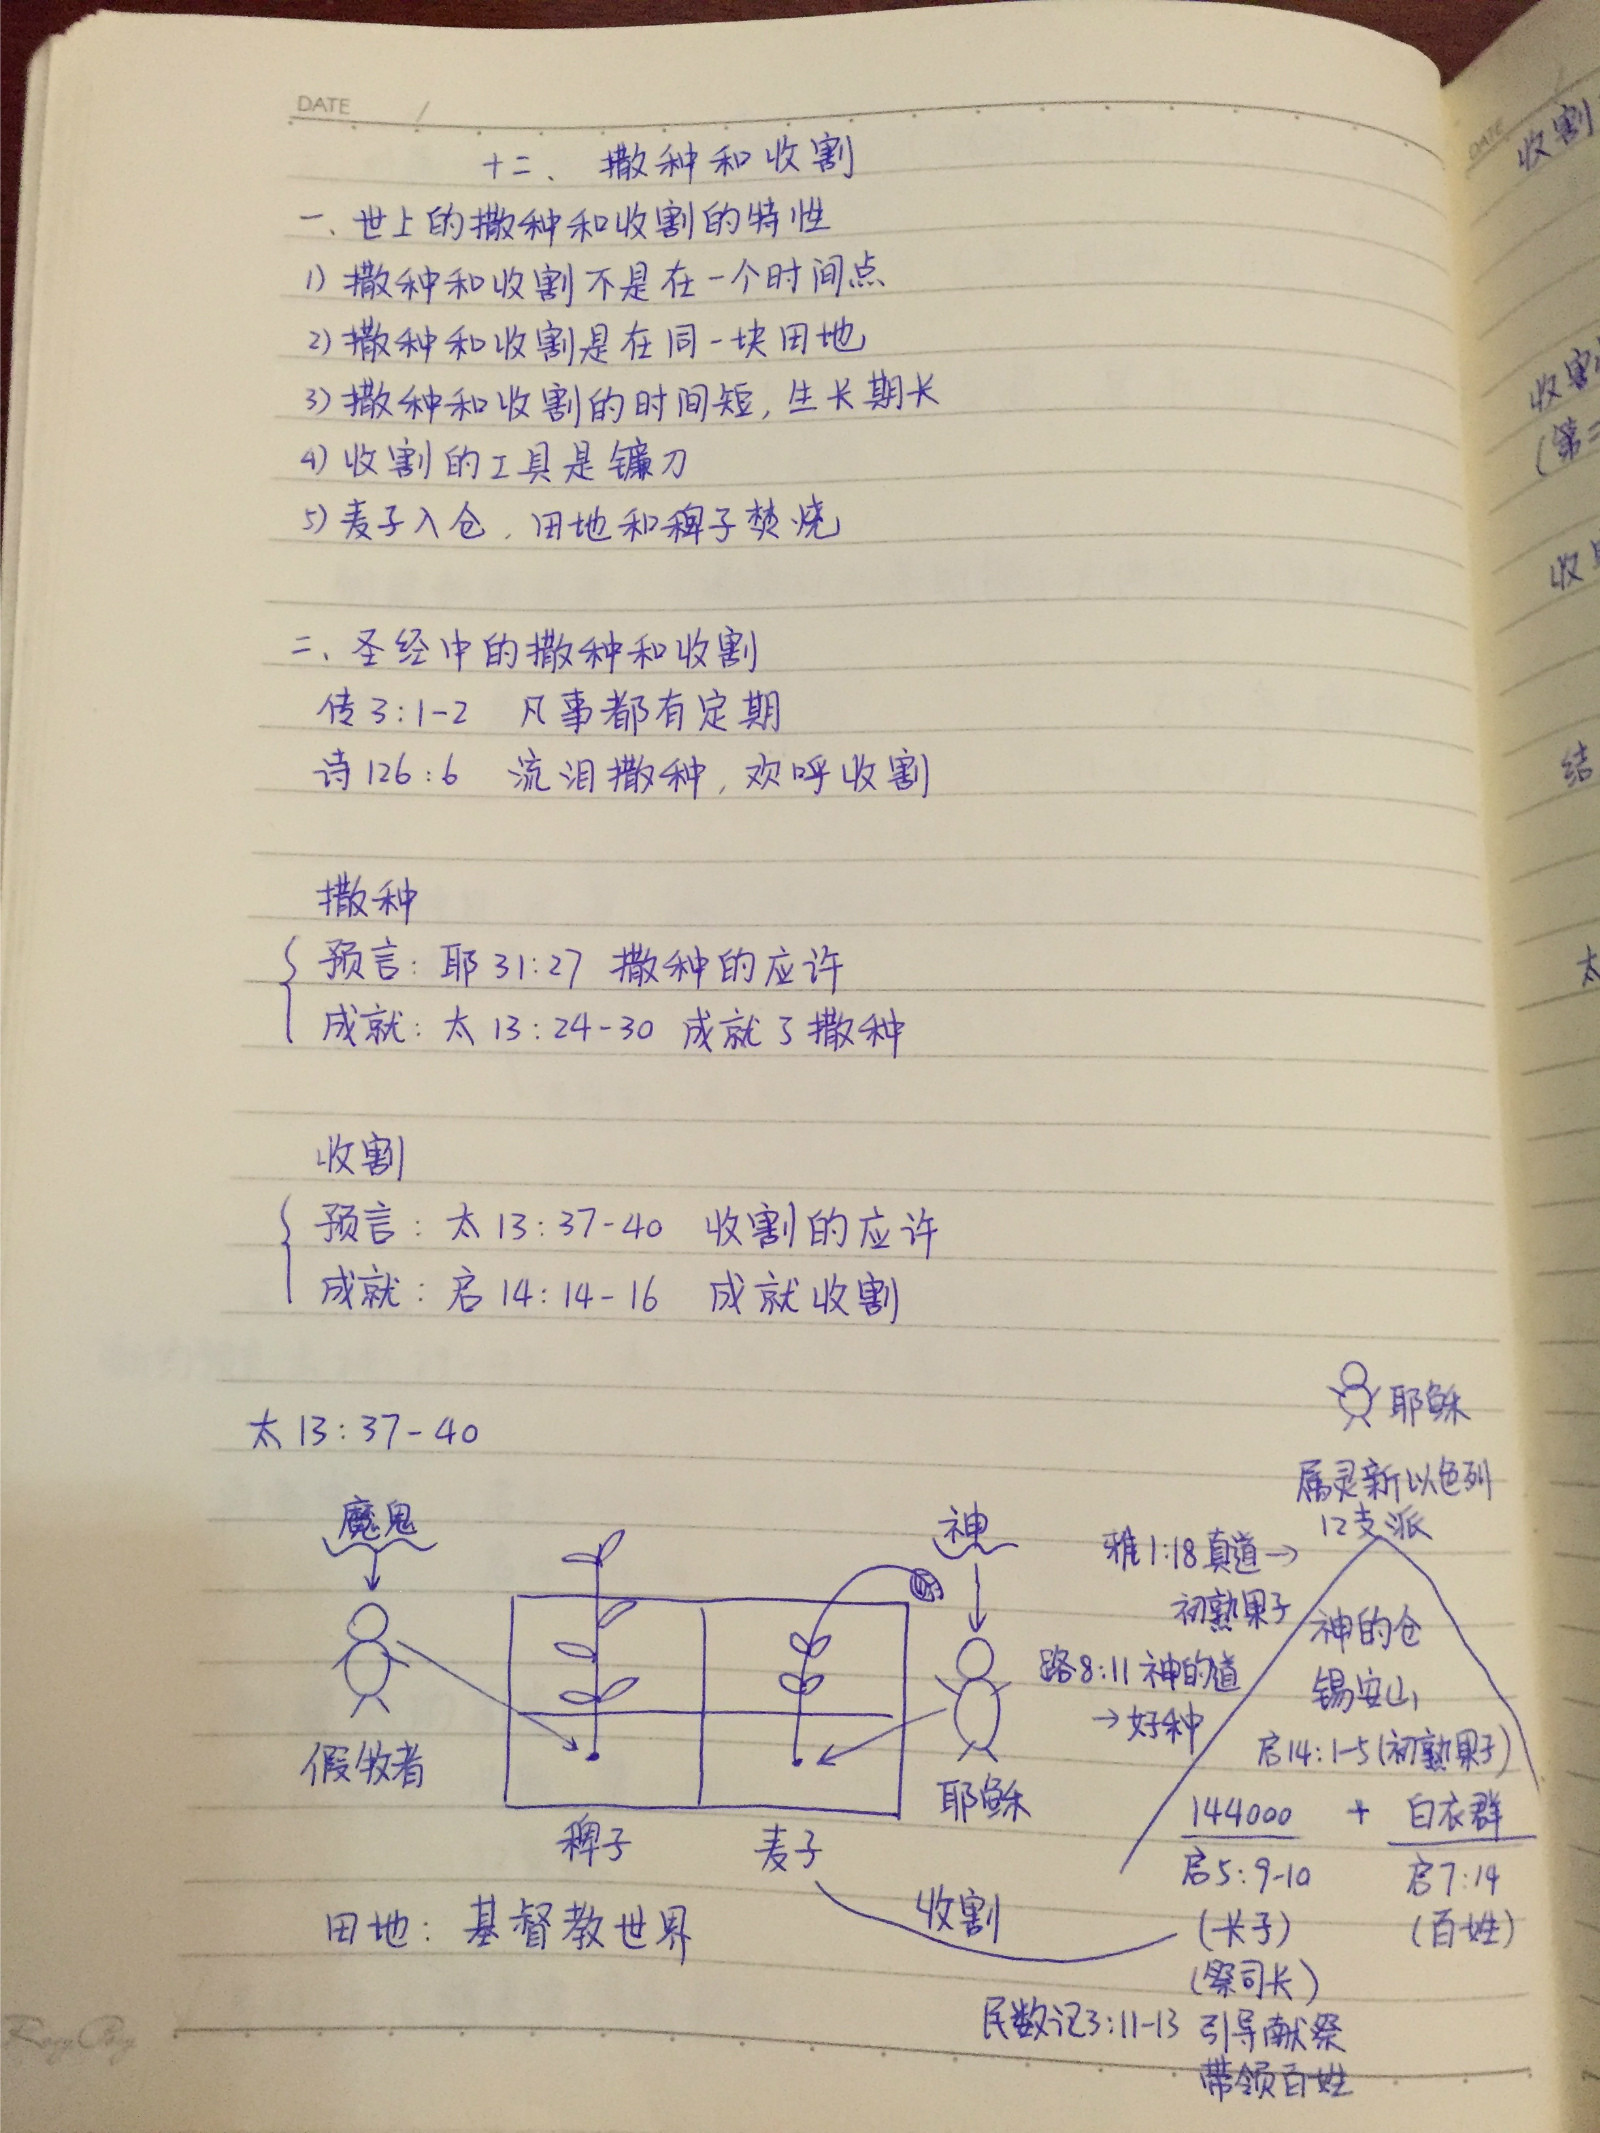 DATE /
十二、 撒种和收割
一、世上的撒种和收割的特性
1) 撒种和收割不是在一个时间点
2) 撒种和收割是在同一块田地
3) 撒种和收割的时间短, 生长期长
4) 收割的工具是镰刀
5) 麦子入仓, 田地和稗子焚烧
二、圣经中的撒种和收割
传3:1-2 凡事都有定期
诗126:6 流泪撒种, 欢呼收割
撒种
预言: 耶31:27 撒种的应许
成就: 太13:24-30 成就了撒种
收割
预言: 太13:37-40 收割的应许
成就: 启14:14-16 成就收割
太13:37-40
魔鬼
假牧者
稗子
麦子
神
耶稣
田地: 基督教世界
收割
雅1:18真道→
初熟果子
路8:11神的道
→好种
耶稣
属灵新以色列
12支派
神的仓
锡安山
启14:1-5(初熟果子)
144000 + 白衣群
启5:9-10 启7:14
(长子) (百姓)
(祭司长)
民数记3:11-13 引导献祭
带领百姓
DATE /
收割
收割
(第二
收
结
太